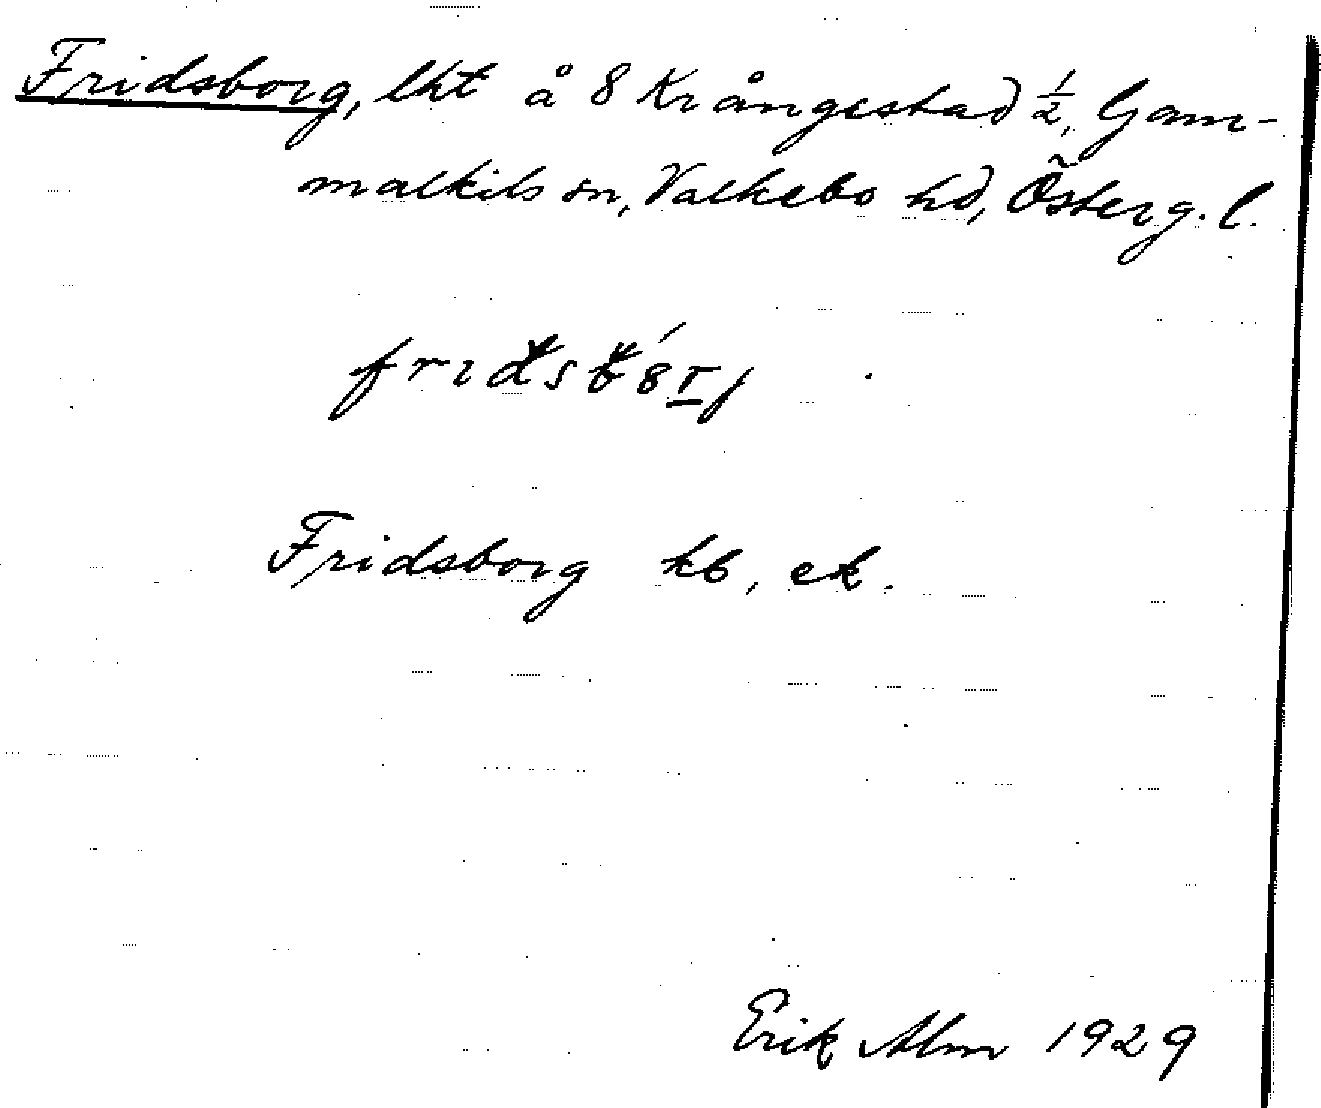 Fridsborg, lht å 8 Krångestad ½, Gam-
malkils sn, Valkebo hd, Österg. l.
Fridsborg kb, ek.
Erik Alm 1929